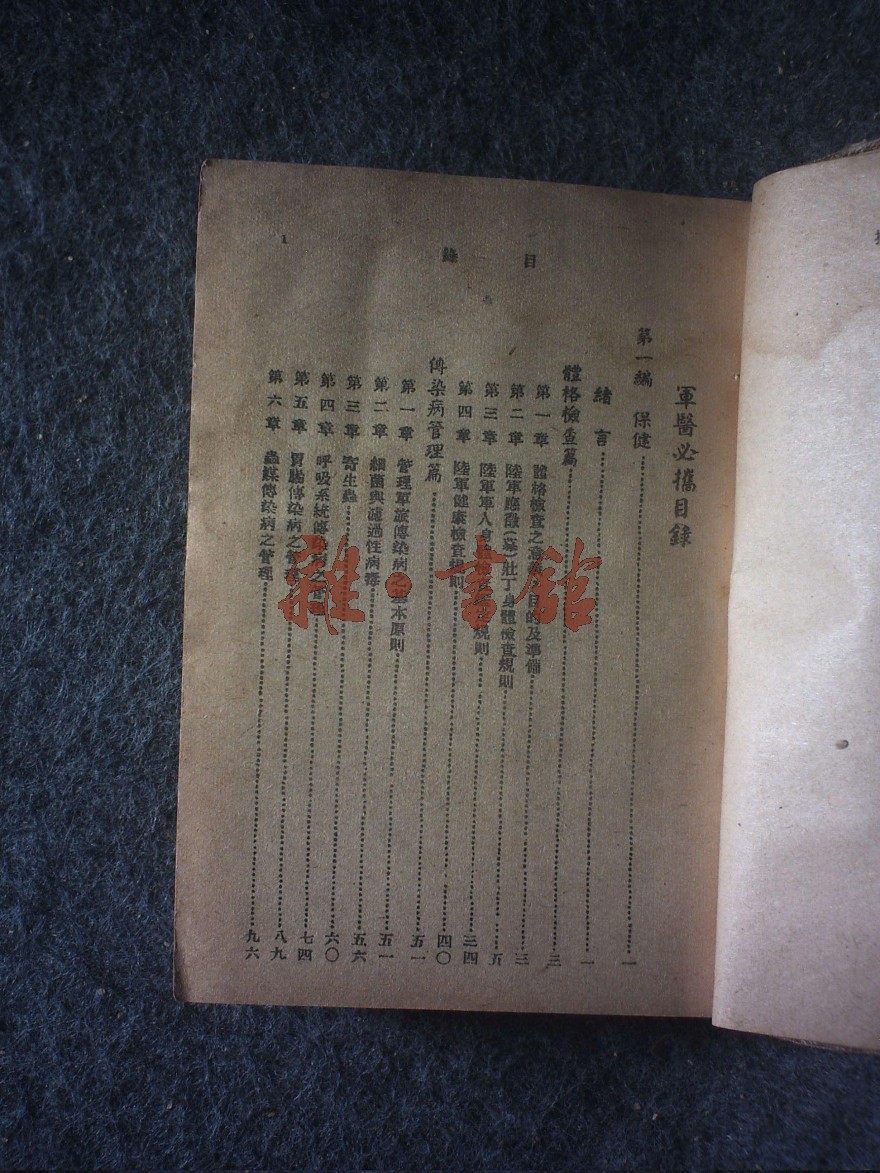 目 錄
1
軍醫必攜目錄
第一編 保健……一
緒言……一
體格檢查篇……三
第一章 體格檢查之意義目的及準備……三
第二章 陸軍應徵(募)壯丁身體檢查規則……五
第三章 陸軍軍人身體檢查規則……三四
第四章 陸軍健康檢查規則……四〇
傳染病管理篇……五一
第一章 管理軍旅傳染病之基本原則……五一
第二章 細菌與濾過性病毒……五六
第三章 寄生蟲……六〇
第四章 呼吸系統傳染病之管理……七四
第五章 胃腸傳染病之管理……八九
第六章 蟲媒傳染病之管理……九六
雜·書館